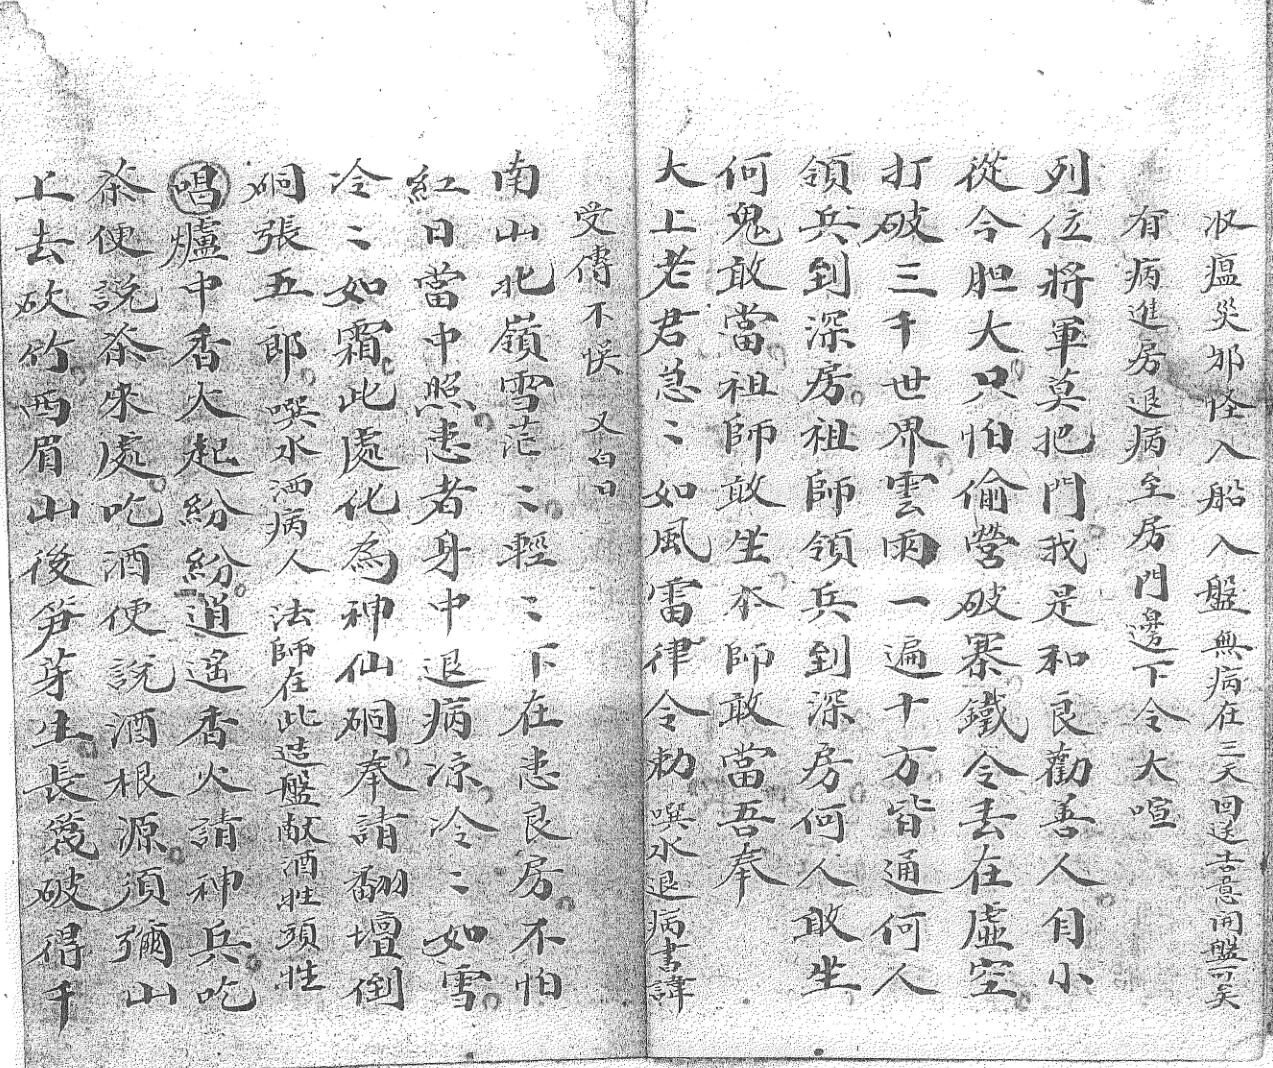 收瘟災邪怪入船入盤無病在三天回送吉意開盤可矣
有病進房退病至房門邊下令大喧
列位將軍莫把門我是和良勸善人自小
從今胆大只怕偷營破寨鐵令去在虛空
打破三千世界雲雨一遍十方皆通何人
領兵到深房祖師領兵到深房何人敢坐
何鬼敢當祖師敢坐本師敢當吾奉
大上老君急〻如風雷律令勅噀水退病書諱
受傳不悞 又白曰
南山北嶺雪茫〻輕〻下在患良房不怕
紅日當中照患者身中退病凉冷〻如雪
冷〻如霜此處化為神仙硐奉請翻壇倒
硐張五郎噀水洒病人法師在此造盤献酒牲頭牲
唱爐中香火起紛紛逍遙香火請神兵吃
茶便說茶來處吃酒便說酒根源須彌山
上去砍竹西眉山後笋芽生長篾破得千